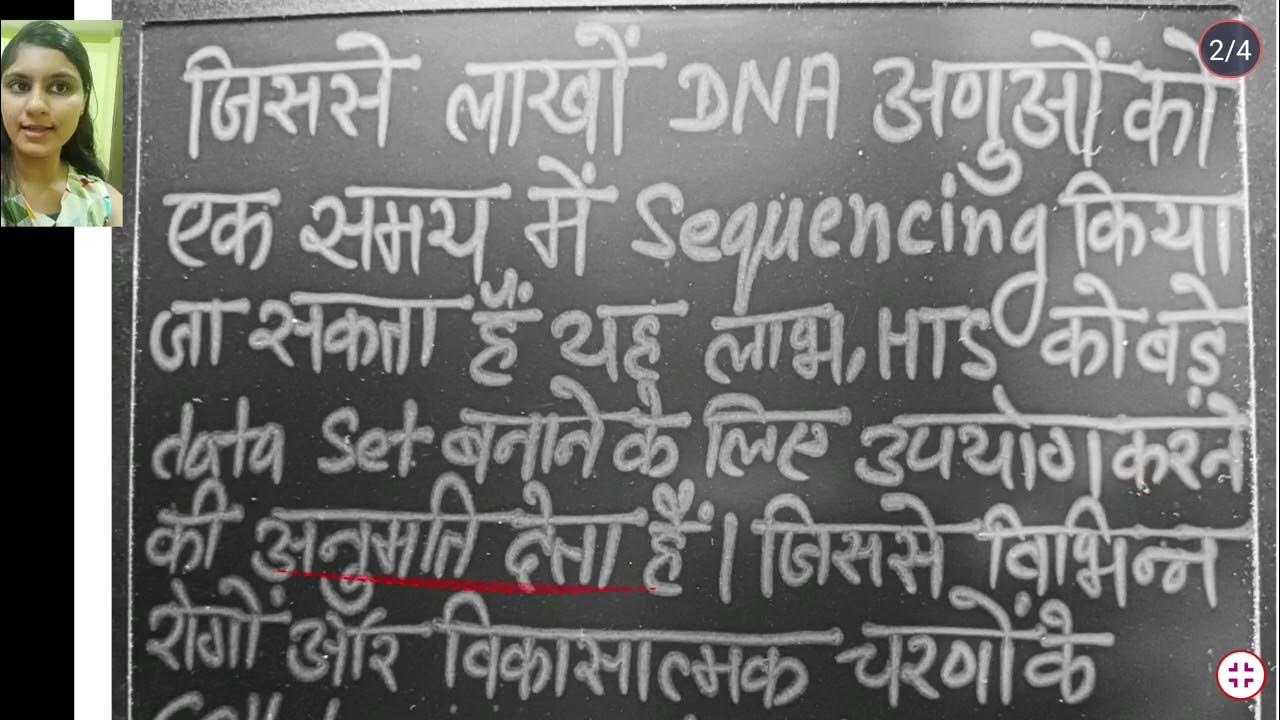 2/4
जिससे लाखों DNA अणुओं को
एक समय में Sequencing किया
जा सकता हैं यह लाभ, HTS को बड़े
data Set बनाने के लिए उपयोग करने
की अनुमति देता हैं। जिससे विभिन्न
रोगों और विकासात्मक चरणों के